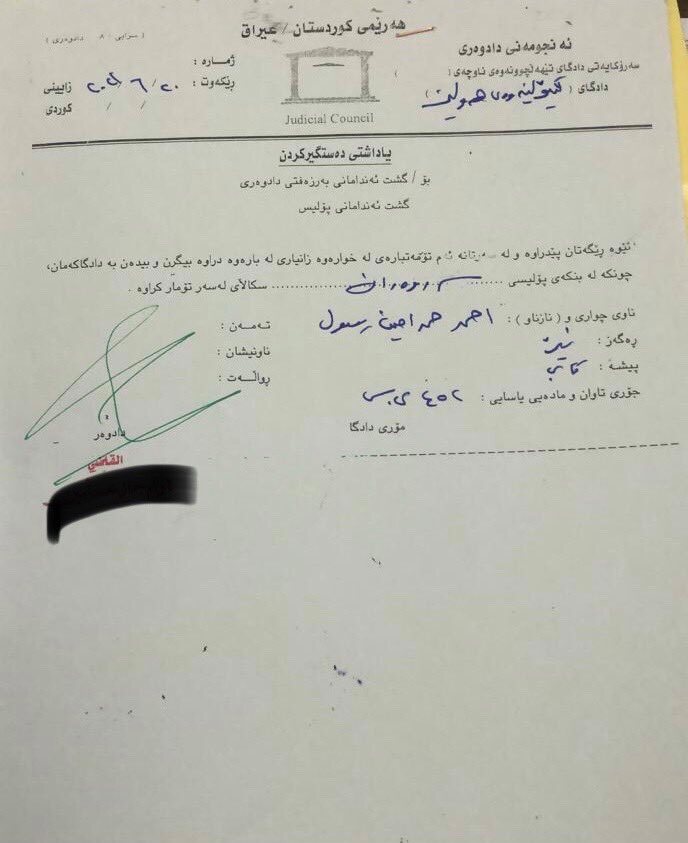 هەرێمی کوردستان / عیراق
ئەنجومەنی دادوەری
سەرۆکایەتی دادگای تێهەڵچوونەوەی ناوچەی (
دادگای ( لێکۆڵینەوەی هەولێر )
( دادوەری / ٨
ژمارە :
ڕێکەوت : ٢٠ / ٦ / زایینی
/ / کوردی
Judicial Council
یاداشتی دەستگیرکردن
بۆ / گشت ئەندامانی بەرزەفتی دادوەری
گشت ئەندامانی پۆلیس
ئێوە ڕێگەتان پێدراوە و لە سەرتانە ئەم تۆمەتبارەی لە خوارەوە زانیاری لە بارەوە دراوە بیگرن و بیدەن بە دادگاکەمان،
چونکە لە بنکەی پۆلیسی .......... سکاڵای لەسەر تۆمار کراوە .
ناوی چواری و ( نازناو ) : احمد حمد امین رسول
تەمەن :
ڕەگەز : نێر
ناونیشان :
پیشە : کاتب
ڕواڵەت :
جۆری تاوان و مادەیی یاسایی : ٤٥٢
مۆری دادگا
دادوەر
القاضي